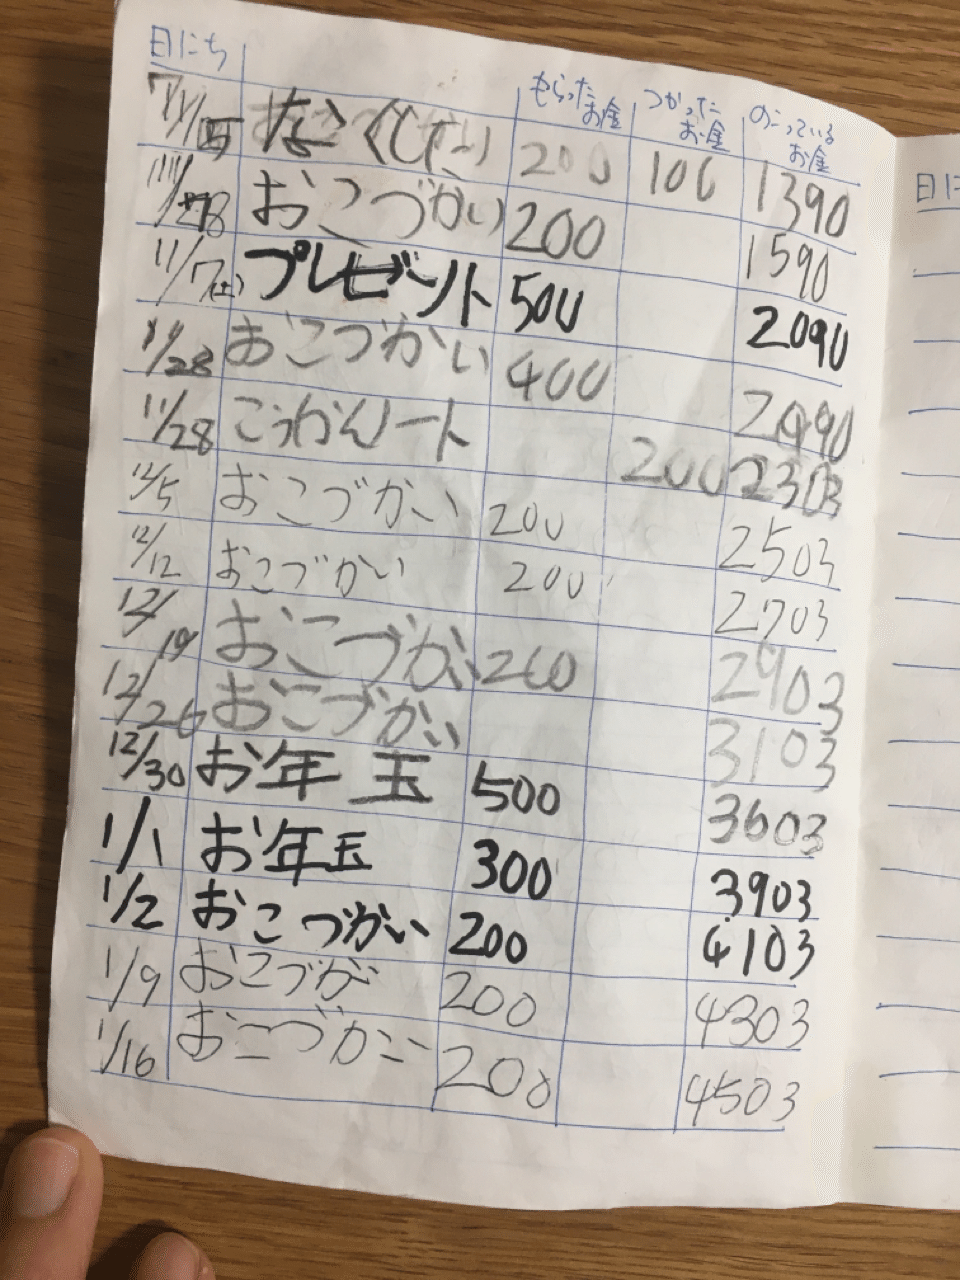 日にち もらったお金 つかったお金 のこっているお金
なくした 200 100 1390
おこづかい 200 1590
11/7(土) プレゼント 500 2090
おこづかい 400 2490
11/28 こうかんノート 200 2303
12/5 おこづかい 200 2503
12/12 おこづかい 200 2703
12/19 おこづかい 200 2903
12/26 おこづかい 3103
12/30 お年玉 500 3603
1/1 お年玉 300 3903
1/2 おこづかい 200 4103
1/9 おこづか 200 4303
1/16 おこづかい 200 4503
日に